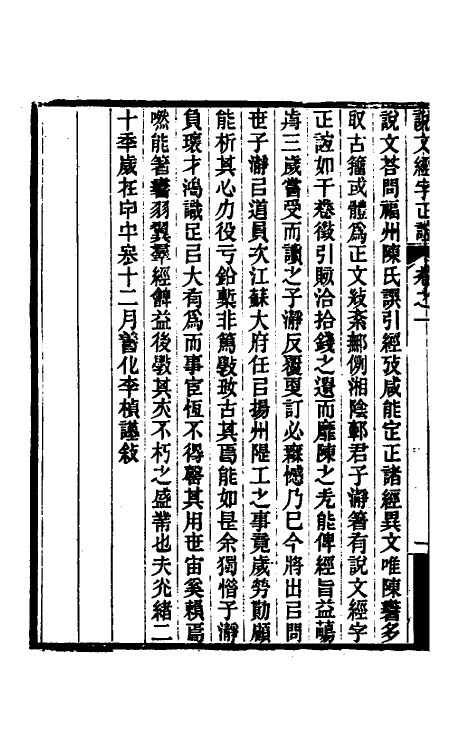 說文經字正誼 卷之一 一
說文荅問福州陳氏譔引經攷咸能定正諸經異文唯陳書多
取古籀或體為正文紊鄦例湘陰郭君子瀞箸有說文經字
正誼如干卷徵引賅洽拾錢之遺而靡陳之尤能俾經旨益鬯
歬三歲嘗受而讀之子瀞反覆更訂必無憾乃已今將出㠯問
世子瀞㠯道員次江蘇大府任㠯揚州隄工之事竟歲勞勩顧
能析其心力役亏鉛槧非篤斅攷古其焉能如是余獨惜子瀞
負瓌才鴻識足㠯大有為而事宦恆不得罄其用世宙奚賴焉
嘫能箸書羽翼羣經餽益後斅其亦不朽之盛業也夫光緒二
十季歲在甲午冬十二月善化李楨謹敘